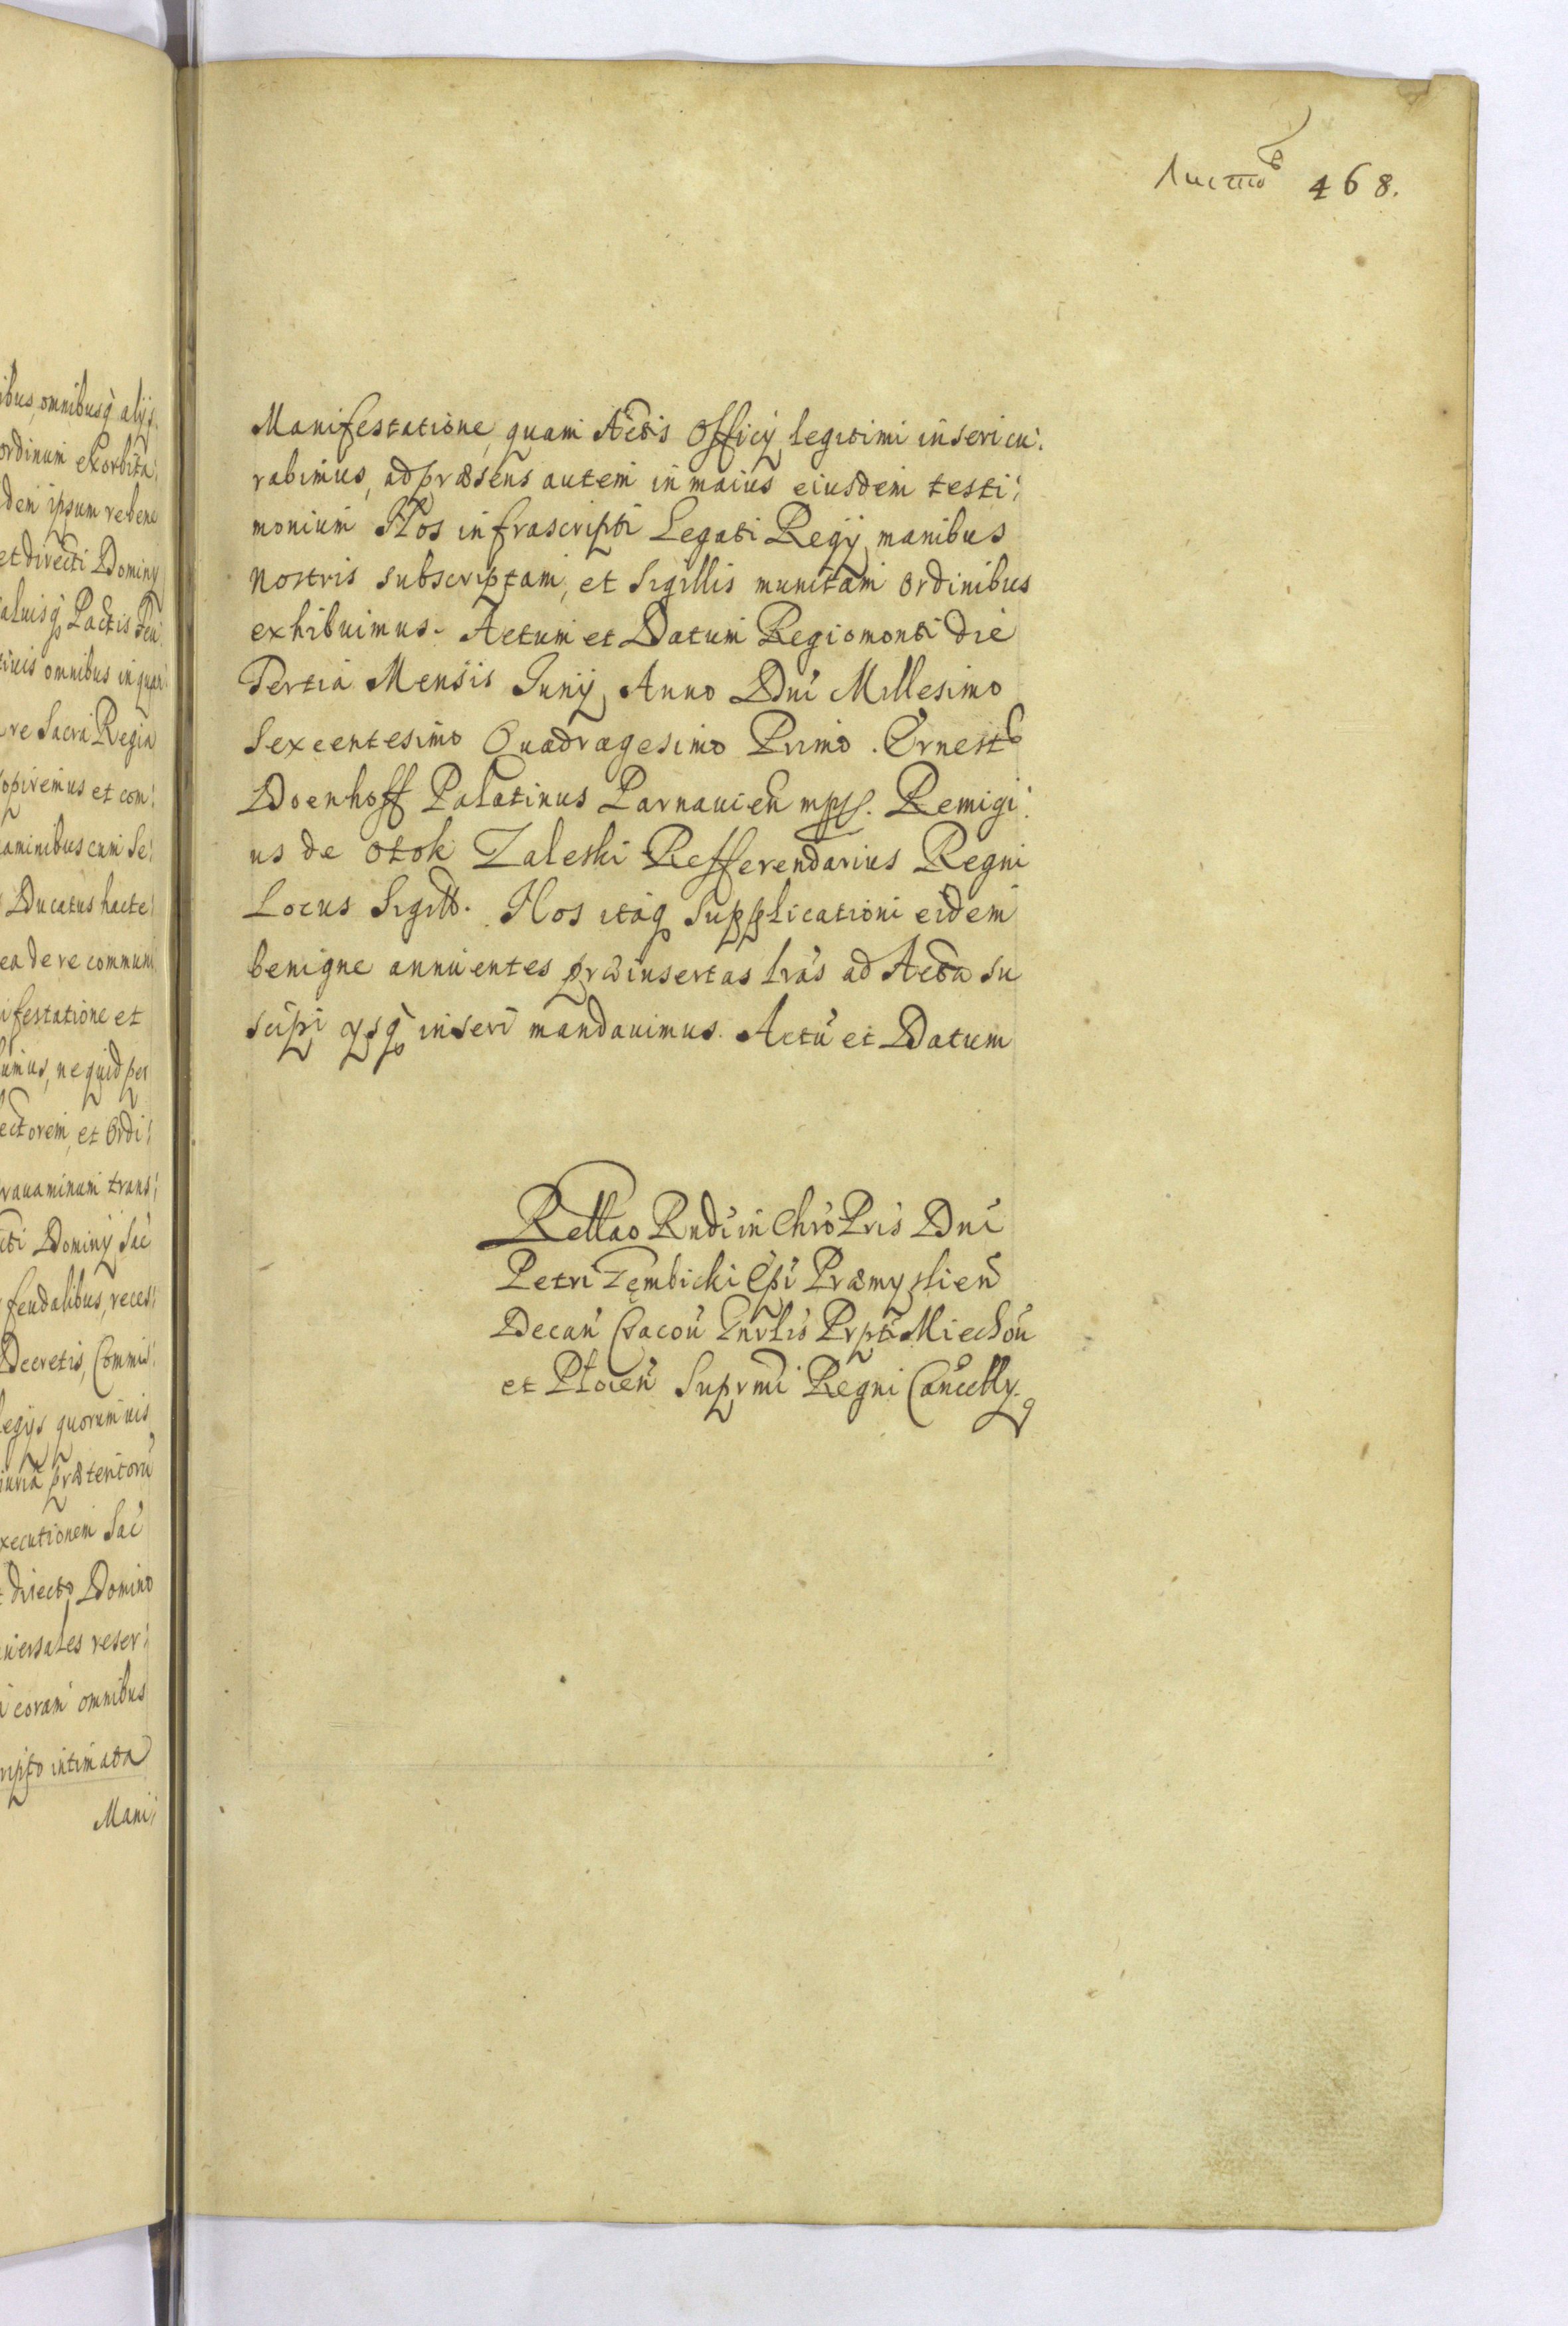 ибus, omnibusq́ alijs
ordinum exorbita:
dem ipsum rebene
et directi Dominij
aluisq́ Pactis Feu:
tiuis omnibus in quan:
re Sacra Regia
opiremus et com:
aminibus cum Se:
Ducatus hacte
ea de re commum
ifestatione et
umus, ne quid per
ectorem, et Ordi:
rauaminum trans:
cti Dominij Sac
feudalibus, reces:
Decretis, Commis:
legijs quorumuis
iuria prætentorū
xecutionem Sac
directo Domino
iuersales reser:
coram omnibus
ripto intimata
Mani:
Листовъ 468.
Manifestatione, quam Actis Officij legitimi inseri cu:
rabimus, ad præsens autem in maius eiusdem testi:
monium Nos infrascripti Legati Regij manibus
nostris subscriptam, et Sigillis munitam Ordinibus
exhibuimus. Actum et Datum Regiomonti die
Tertia Mensis Junij Anno Dni Millesimo
Sexcentesimo Quadragesimo Primo. Ernestꝰ
Doenhoff Palatinus Parnauień mpp. Remigi:
us de Otok Zaleski Refferendarius Regni
Locus Sigill. Nos itaq́ supplicationi eidem
benigne annuentes præinsertas lrás ad Acta su
scipi ysq́ inseri mandauimus. Actū et Datum
Rellao Rndi in Chro Pris Dni
Petri Gembicki Epi Præmyslień
Decań Cracoū Gnrlis Prpti Miechoū
et Płoceń Suprmi Regni Cancelly.